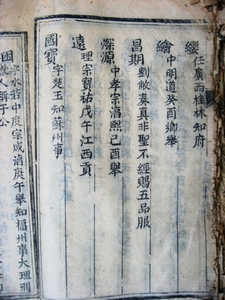 纓任廣西桂林知府
繪中明道癸酉鄉舉
昌期劉敞奏真非聖不經賜五品服
深源中孝宗淳熙己酉舉
遠理宗寶祐戊午江西貢
國寶字楚玉知蘇州事
國
字水若中度宗咸淳庚午舉知福州事大理刑